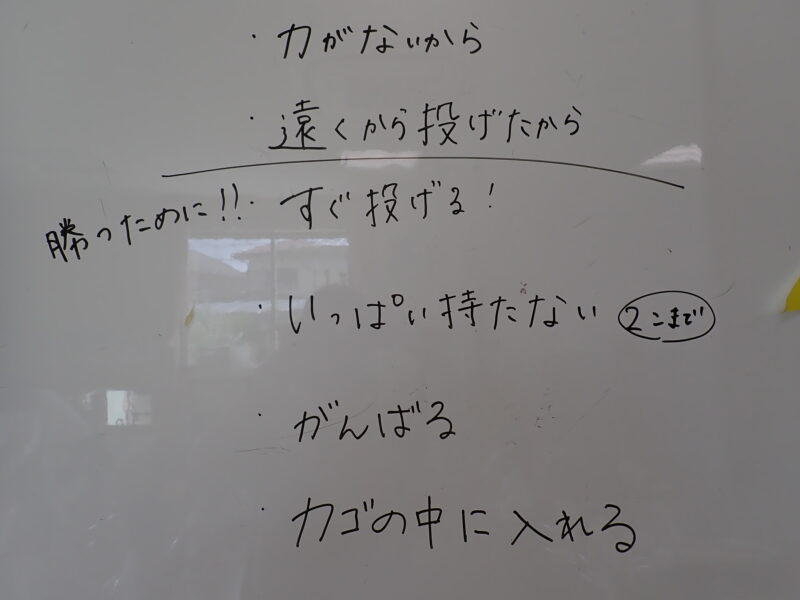 ・力がないから
・遠くから投げたから
勝つために!!・すぐ投げる!
・いっぱい持たない 2こまで
・がんばる
・カゴの中に入れる